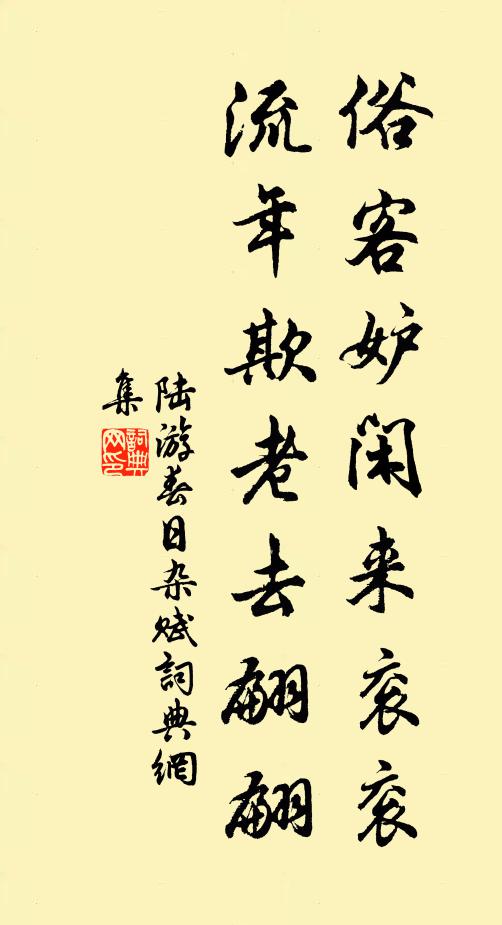 俗客妒闲来衮衮
流年欺老去翩翩
陆游春日杂赋詞典網
集
詞典网印